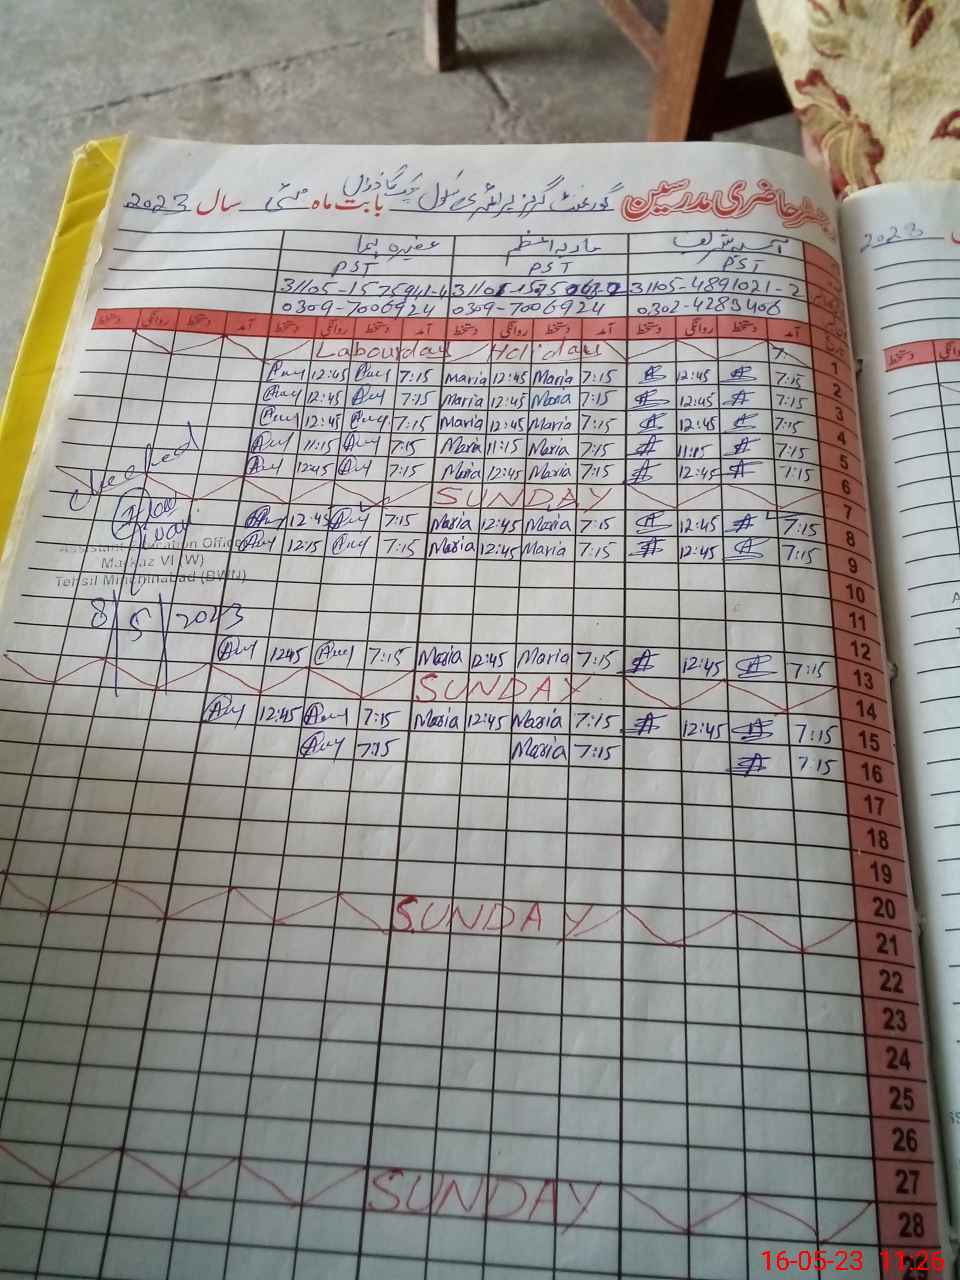 رجسٹر حاضری مدرسین گورنمنٹ گرلز پرائمری سکول بابت ماہ مئی سال 2023
PST PST PST
31105-4891021-2
0309-7006924 0309-7006924 0302-4283406
آمد دستخط روانگی دستخط آمد دستخط روانگی دستخط آمد دستخط روانگی دستخط آمد دستخط روانگی دستخط
Labourday Holiday 1
12:45 7:15 Maria 12:45 Maria 7:15 12:45 7:15 2
12:45 7:15 Maria 12:45 Maria 7:15 12:45 7:15 3
12:45 7:15 Maria 12:45 Maria 7:15 12:45 7:15 4
11:15 7:15 Maria 11:15 Maria 7:15 11:15 7:15 5
12:45 7:15 Maria 12:45 Maria 7:15 12:45 7:15 6
SUNDAY 7
12:45 7:15 Maria 12:45 Maria 7:15 12:45 7:15 8
12:15 7:15 Maria 12:45 Maria 7:15 12:45 7:15 9
10
11
12
12:45 7:15 Maria 12:45 Maria 7:15 12:45 7:15 13
SUNDAY 14
12:45 7:15 Maria 12:45 Maria 7:15 12:45 7:15 15
7:15 Maria 7:15 7:15 16
17
18
19
20
SUNDAY 21
22
23
24
25
26
27
SUNDAY 28
Checked
Assistant Education Officer
Markaz VI (W)
Tehsil Minchinabad (BWN)
8/5/2023
2023
16-05-23 11:26